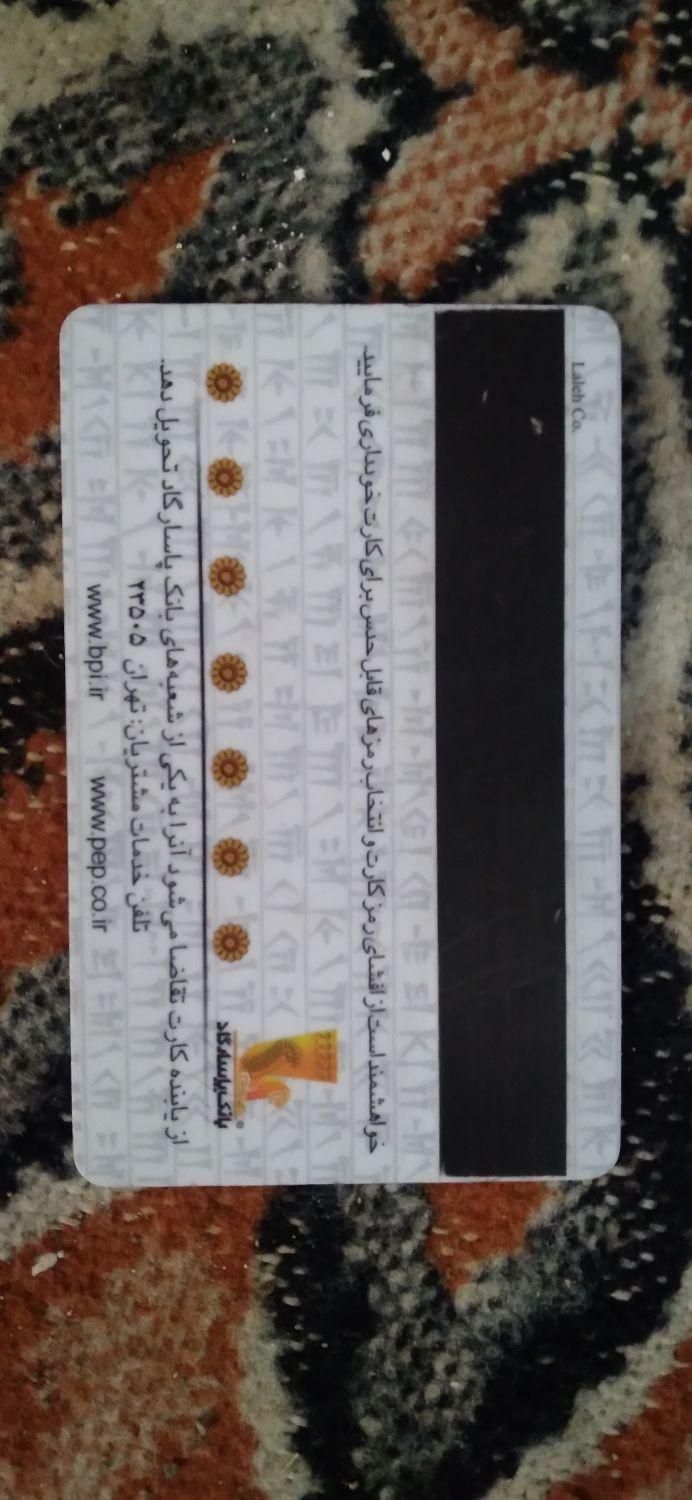 Laleh Co.
خواهشمند است از افشای رمز کارت و انتخاب رمزهای قابل حدس برای کارت خودداری فرمایید.
بانک پاسارگاد
از یابنده کارت تقاضا می‌شود آنرا به یکی از شعبه‌های بانک پاسارگاد تحویل دهد.
تلفن خدمات مشتریان: تهران ۲۳۵۰۵
www.bpi.ir www.pep.co.ir